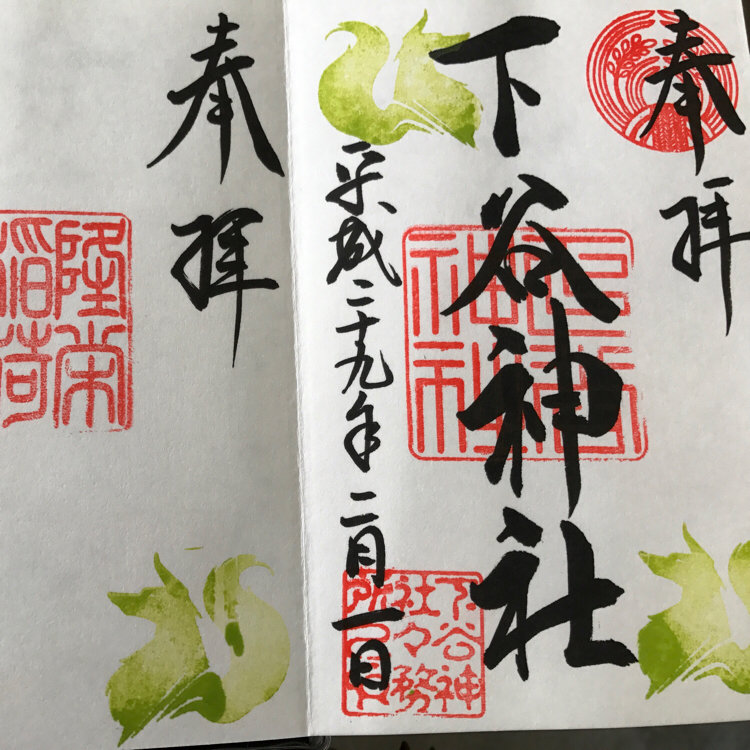 奉拝
下谷神社
平成二十九年二月一日
下谷神
社々務
所之印
奉拝
隆栄
稲荷